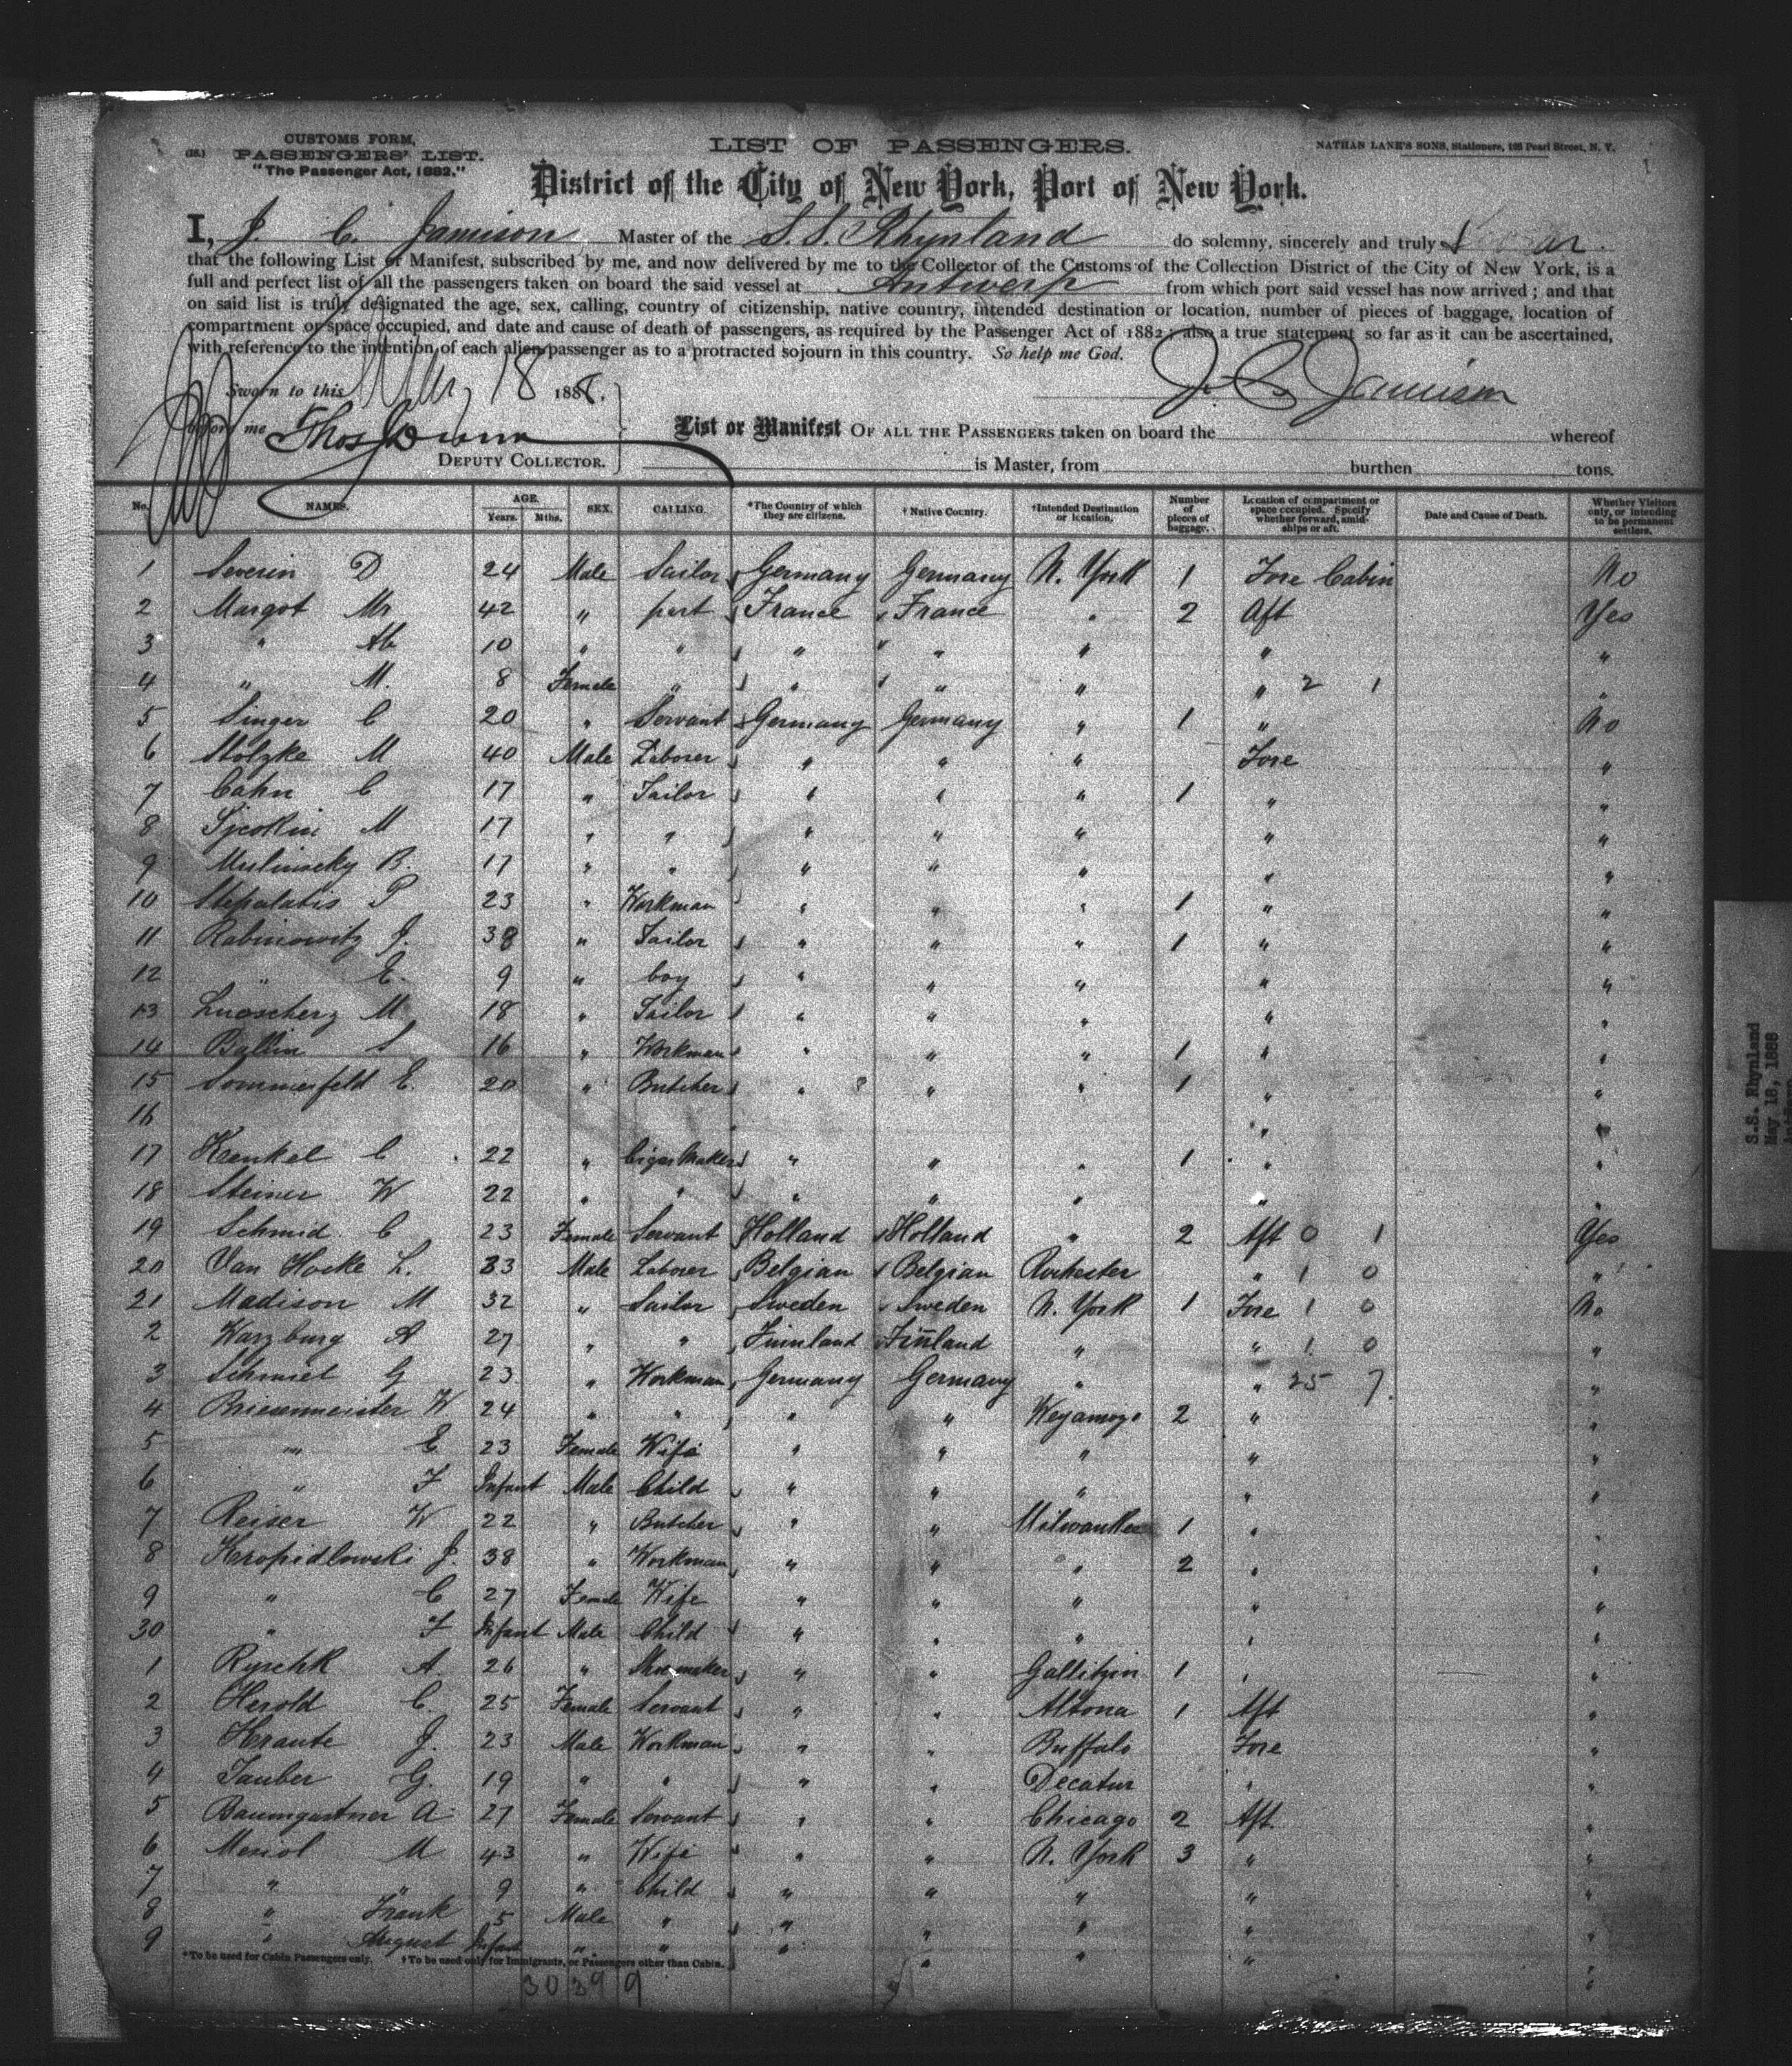 CUSTOMS FORM,
(18.) PASSENGERS' LIST.
"The Passenger Act, 1882."
LIST OF PASSENGERS.
NATHAN LANE'S SONS, Stationers, 198 Pearl Street, N. Y.
District of the City of New York, Port of New York.
I, J. C. Jamison Master of the S.S. Rhynland do solemny, sincerely and truly
that the following List or Manifest, subscribed by me, and now delivered by me to the Collector of the Customs of the Collection District of the City of New York, is a
full and perfect list of all the passengers taken on board the said vessel at Antwerp from which port said vessel has now arrived ; and that
on said list is truly designated the age, sex, calling, country of citizenship, native country, intended destination or location, number of pieces of baggage, location of
compartment or space occupied, and date and cause of death of passengers, as required by the Passenger Act of 1882 ; also a true statement so far as it can be ascertained,
with reference to the intention of each alien passenger as to a protracted sojourn in this country. So help me God.
Sworn to this May 18 1888.
J. C. Jamison
before me Thos Dunn
DEPUTY COLLECTOR.
List or Manifest OF ALL THE PASSENGERS taken on board the whereof
is Master, from burthen tons.
No. NAMES. AGE. Years. Mths. SEX. CALLING. *The Country of which they are citizens. †Native Country. †Intended Destination or location. Number of pieces of baggage. Location of compartment or space occupied. Specify whether forward, amidships or aft. Date and Cause of Death. Whether Visitors only, or intending to be permanent settlers.
1 Severin D 24 Male Sailor Germany Germany N. York 1 Fore Cabin No
2 Margot Mr 42 " France France " 2 Aft Yes
3 " Ab 10 " " " " " " "
4 " M. 8 Female " " " " " 2 1 "
5 Singer C 20 " Servant Germany Germany " 1 " No
6 Stolzke M 40 Male Laborer " " " Fore "
7 Cahn C 17 " Tailor " " " 1 " "
8 M 17 " " " " " " "
9 B. 17 " " " " " " "
10 Stepalatis P 23 " Workman " " " 1 " "
11 Rabinowitz J. 38 " Tailor " " " 1 " "
12 " E. 9 " boy " " " " "
13 M 18 " Tailor " " " " "
14 Ballin S 16 " Workman " " " 1 " "
15 Sommerfeld E. 20 " Butcher " " " 1 " "
16 " "
17 Henkel C 22 " Cigar Maker " " " 1 " "
18 Steiner W 22 " " " " " " "
19 Schmid C 23 Female Servant Holland Holland " 2 Aft 0 1 Yes
20 Van Hocke L. 33 Male Laborer Belgian Belgian Rochester " 1 0 "
21 Madison M 32 " Sailor Sweden Sweden N. York 1 Fore 1 0 No
2 Warzburg A 27 " " Finnland Finland " " 1 0 "
3 Schmiel G 23 " Workman Germany Germany " " 25 7. "
4 Briesenmeister W 24 " " " " 2 " "
5 " E 23 Female Wife " " " " "
6 " F Infant Male Child " " " " "
7 Reiser W 22 " Butcher " " Milwaukee 1 " "
8 Keropidlowski J. 38 " Workman " " " 2 " "
9 " C 27 Female Wife " " " " "
30 " F Infant Male Child " " " " "
1 Ryschk A. 26 " Shoemaker " " Gallitzin 1 " "
2 Herold C. 25 Female Servant " " Altona 1 Aft "
3 Heraute J. 23 Male Workman " " Buffalo Fore "
4 Tauber G. 19 " " " " Decatur " "
5 Baumgartner A. 27 Female Servant " " Chicago 2 Aft. "
6 Mesiol M 43 " Wife " " N. York 3 " "
7 " " 9 " Child " " " " "
8 " Frank 5 Male " " " " " "
9 " August Infant " " " " " " "
*To be used for Cabin Passengers only. †To be used only for Immigrants, or Passengers other than Cabin.
30 39 9
S.S. Rhynland
May 18, 1888